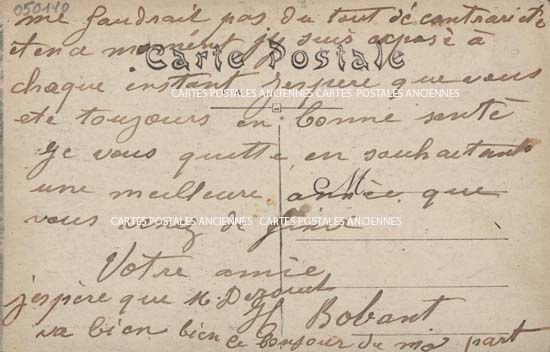 050140
me faudrait pas du tout de contrariete
et en ce moment je suis exposé à
Carte Postale
chaque instant j'espère que vous
CARTES POSTALES ANCIENNES CARTES POSTALES ANCIENNES
ete toujours en bonne santé
Je vous quitte en souhaitant
une meilleure année que
M
vous
CARTES POSTALES ANCIENNES CARTES POSTALES ANCIENNES
Votre amie
j'espère que M.
H Bobant
va bien bien le bonjour de ma part